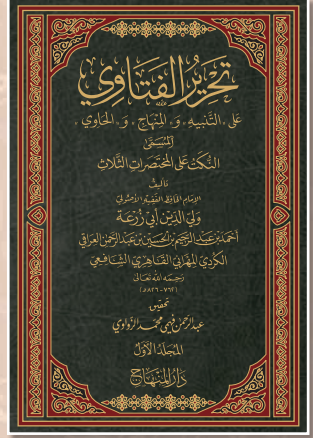 تحرير الفتاوي
على «التنبيه» و«المنهاج» و«الحاوي»
المسمى
النكت على المختصرات الثلاث
تأليف
الإمام الحافظ الفقيه الأصولي
ولي الدين أبي زرعة
أحمد بن عبد الرحيم بن الحسين بن عبد الرحمن العراقي
الكردي المهراني القاهري الشافعي
رحمه الله تعالى
(٧٦٢-٨٢٦هـ)
تحقيق
عبد الرحمن فهمي محمد الزواوي
المجلد الأول
دار المنهاج